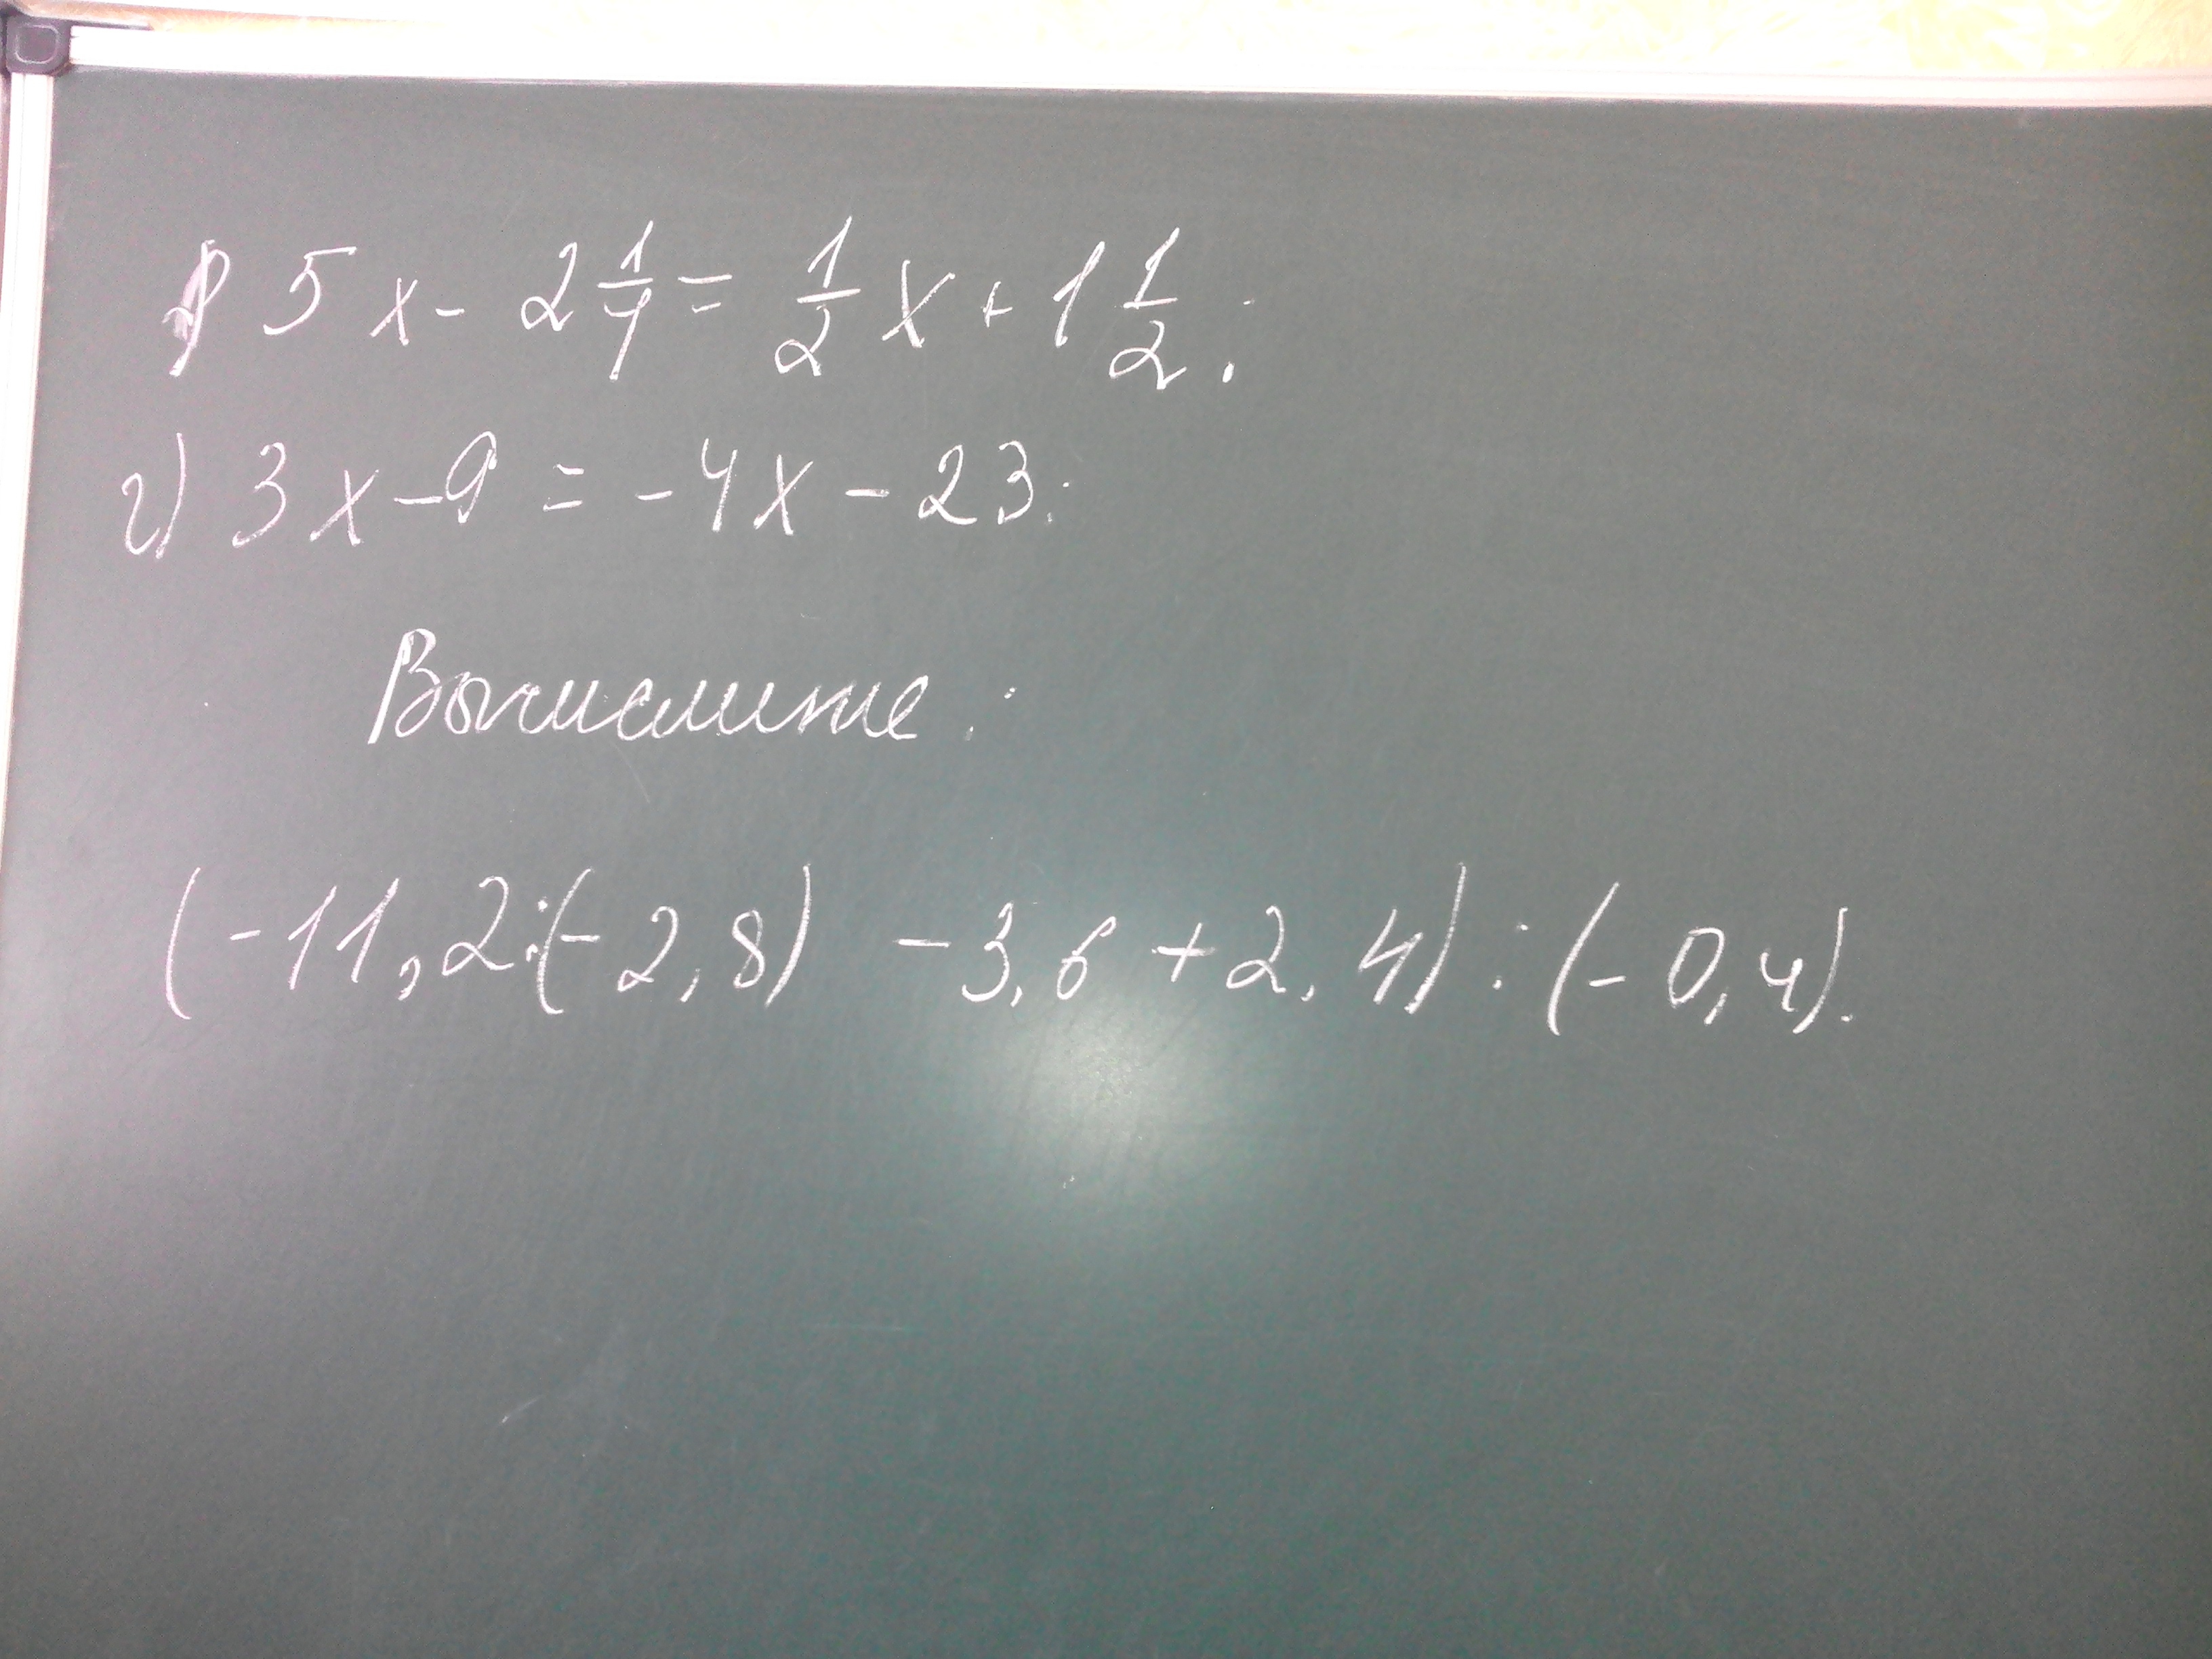 в) 5x - 2 1/4 = 1/2 x + 1 1/2;
г) 3x - 9 = -4x - 23.
Вычислите:
(-11,2:(-2,8) - 3,6 + 2,4) : (-0,4).